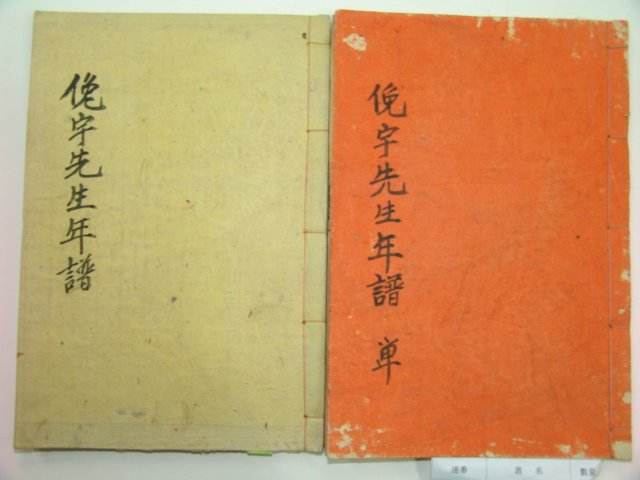 俛宇先生年譜
俛宇先生年譜 单
連番 書名 數量